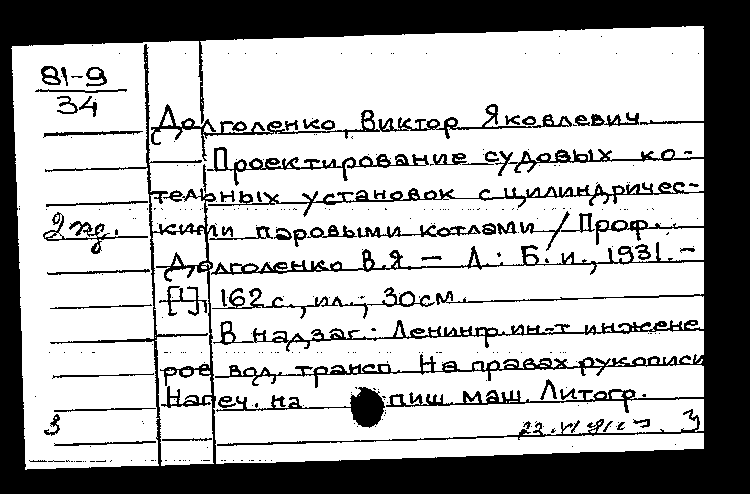 81-9
34
Долголенко, Виктор Яковлевич.
Проектирование судовых ко-
тельных установок с цилиндричес-
2 экз.
кими паровыми котлами / Проф.
Долголенко В.Я. – Л.: Б. и., 1931. –
[1], 162 с., ил.; 30 см.
В надзаг.: Ленингр. ин-т инжене
ров вод. трансп. На правах рукописи
Напеч. на пиш. маш. Литогр.
3